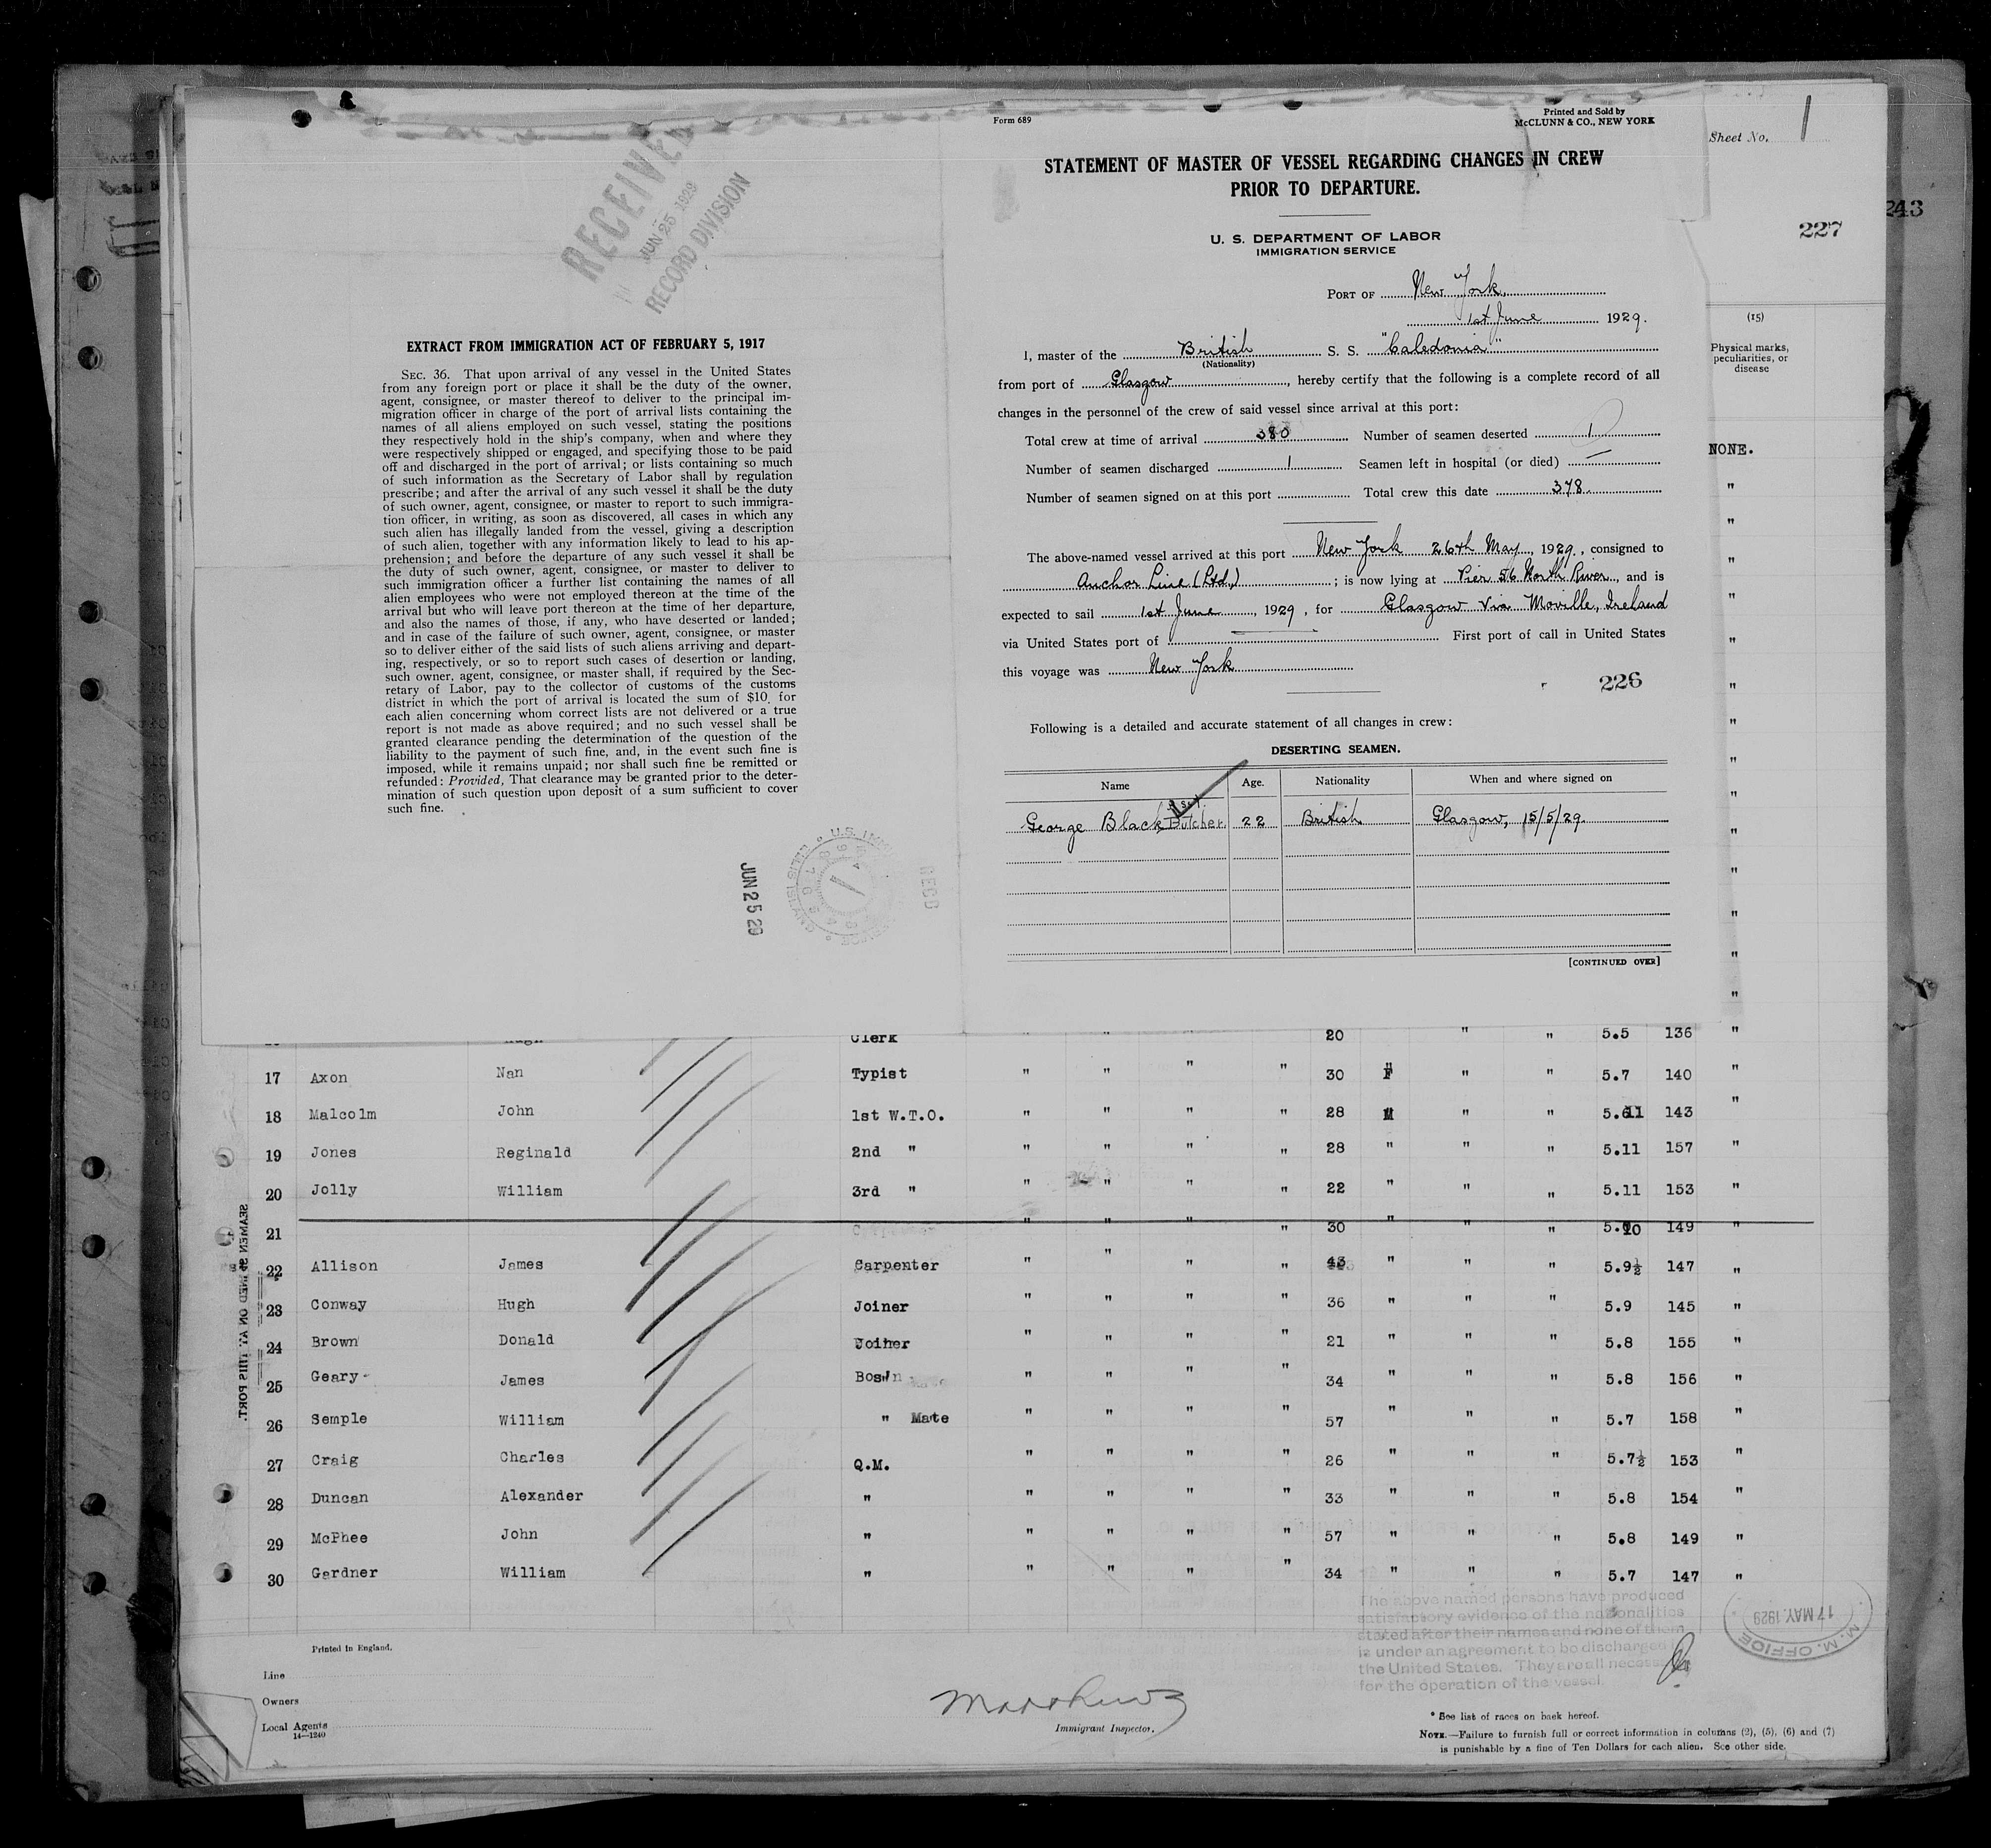 RECEIVED
JUN 25 1929
RECORD DIVISION
EXTRACT FROM IMMIGRATION ACT OF FEBRUARY 5, 1917
SEC. 36. That upon arrival of any vessel in the United States
from any foreign port or place it shall be the duty of the owner,
agent, consignee, or master thereof to deliver to the principal im-
migration officer in charge of the port of arrival lists containing the
names of all aliens employed on such vessel, stating the positions
they respectively hold in the ship's company, when and where they
were respectively shipped or engaged, and specifying those to be paid
off and discharged in the port of arrival; or lists containing so much
of such information as the Secretary of Labor shall by regulation
prescribe; and after the arrival of any such vessel it shall be the duty
of such owner, agent, consignee, or master to report to such immigra-
tion officer, in writing, as soon as discovered, all cases in which any
such alien has illegally landed from the vessel, giving a description
of such alien, together with any information likely to lead to his ap-
prehension; and before the departure of any such vessel it shall be
the duty of such owner, agent, consignee, or master to deliver to
such immigration officer a further list containing the names of all
alien employees who were not employed thereon at the time of the
arrival but who will leave port thereon at the time of her departure,
and also the names of those, if any, who have deserted or landed;
and in case of the failure of such owner, agent, consignee, or master
so to deliver either of the said lists of such aliens arriving and depart-
ing, respectively, or so to report such cases of desertion or landing,
such owner, agent, consignee, or master shall, if required by the Sec-
retary of Labor, pay to the collector of customs of the customs
district in which the port of arrival is located the sum of $10 for
each alien concerning whom correct lists are not delivered or a true
report is not made as above required; and no such vessel shall be
granted clearance pending the determination of the question of the
liability to the payment of such fine, and, in the event such fine is
imposed, while it remains unpaid; nor shall such fine be remitted or
refunded: Provided, That clearance may be granted prior to the deter-
mination of such question upon deposit of a sum sufficient to cover
such fine.
JUN 25 29
RECD
Form 689
Printed and Sold by
McCLUNN & CO., NEW YORK
STATEMENT OF MASTER OF VESSEL REGARDING CHANGES IN CREW
PRIOR TO DEPARTURE.
U. S. DEPARTMENT OF LABOR
IMMIGRATION SERVICE
PORT OF New York
1st June 1929.
I, master of the British S. S. "Caledonia"
(Nationality)
from port of Glasgow, hereby certify that the following is a complete record of all
changes in the personnel of the crew of said vessel since arrival at this port:
Total crew at time of arrival 380 Number of seamen deserted 1
Number of seamen discharged 1 Seamen left in hospital (or died) —
Number of seamen signed on at this port Total crew this date 378
The above-named vessel arrived at this port New York 26th May, 1929, consigned to
Anchor Line (Ltd.); is now lying at Pier 56 North River, and is
expected to sail 1st June, 1929, for Glasgow via Moville, Ireland
via United States port of First port of call in United States
this voyage was New York
226
Following is a detailed and accurate statement of all changes in crew:
DESERTING SEAMEN.
Name Age. Nationality When and where signed on
George Black Butcher 22 British Glasgow, 15/5/29.
[CONTINUED OVER]
Sheet No. 1
243
227
(15)
Physical marks,
peculiarities, or
disease
NONE.
"
"
"
"
"
"
"
"
"
"
"
"
"
"
Clerk " " " 20 " " 5.5 136 "
17 Axon Nan Typist " " " " 30 F " " 5.7 140 "
18 Malcolm John 1st W.T.O. " " " " 28 M " " 5.11 143 "
19 Jones Reginald 2nd " " " " " 28 " " " 5.11 157 "
20 Jolly William 3rd " " " " " 22 " " " 5.11 153 "
21 " " " " 30 " " " 5.10 149 "
22 Allison James Carpenter " " " " 43 " " " 5.9½ 147 "
23 Conway Hugh Joiner " " " " 36 " " " 5.9 145 "
24 Brown Donald Joiner " " " " 21 " " " 5.8 155 "
25 Geary James Bos'n " " " " 34 " " " 5.8 156 "
26 Semple William " Mate " " " " 57 " " " 5.7 158 "
27 Craig Charles Q.M. " " " " 26 " " " 5.7½ 153 "
28 Duncan Alexander " " " " " 33 " " " 5.8 154 "
29 McPhee John " " " " " 57 " " " 5.8 149 "
30 Gardner William " " " " " 34 " " " 5.7 147 "
SEAMEN SIGNED ON AT THIS PORT.
The above named persons have produced
satisfactory evidence of the nationalities
stated after their names and none of them
is under an agreement to be discharged
the United States. They are all necessary
for the operation of the vessel.
M. M. OFFICE
17 MAY 1929
Printed in England.
Line
Owners
Local Agents
14—1240
Immigrant Inspector.
* See list of races on back hereof.
NOTE.—Failure to furnish full or correct information in columns (2), (5), (6) and (7)
is punishable by a fine of Ten Dollars for each alien. See other side.